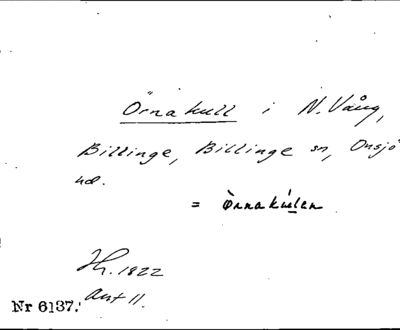 Örnakull i N. Vång,
Billinge, Billinge sn, Onsjö
hd.
= Örnakullen
H. 1822
Avst 11.
Nr 6137.